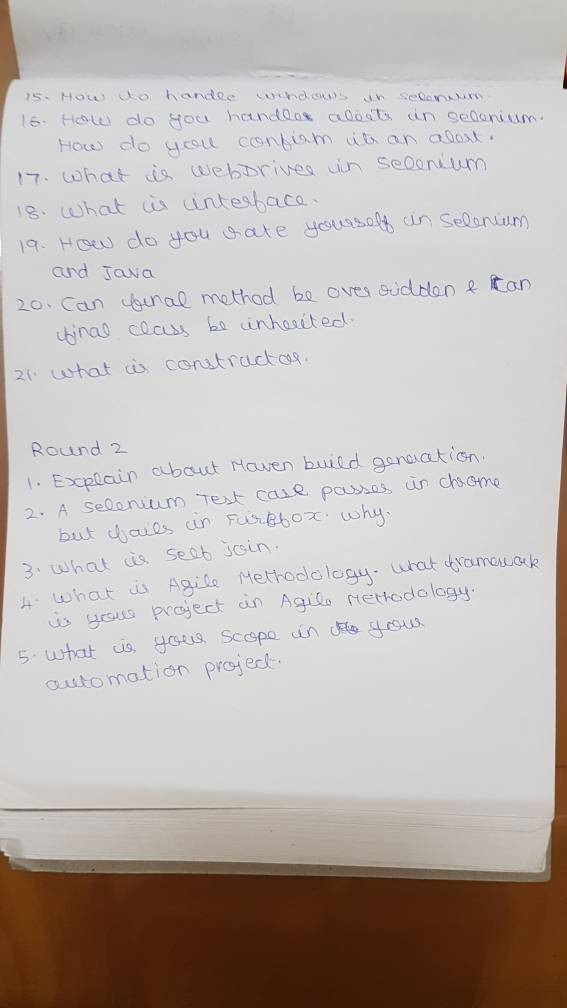 15. How to handle windows in selenium
16. How do you handle alerts in selenium.
How do you confirm its an alert.
17. what is webDriver in selenium
18. what is interface.
19. How do you rate yourself in Selenium
and Java
20. Can final method be over ridden & can
final class be inherited.
21. what is constructor.
Round 2
1. Explain about Maven build generation.
2. A selenium Test case passes in chrome
but fails in Firefox. why.
3. what is self join.
4. what is Agile Methodology. what framework
is your project in Agile Methodology.
5. what is your scope in your
automation project.